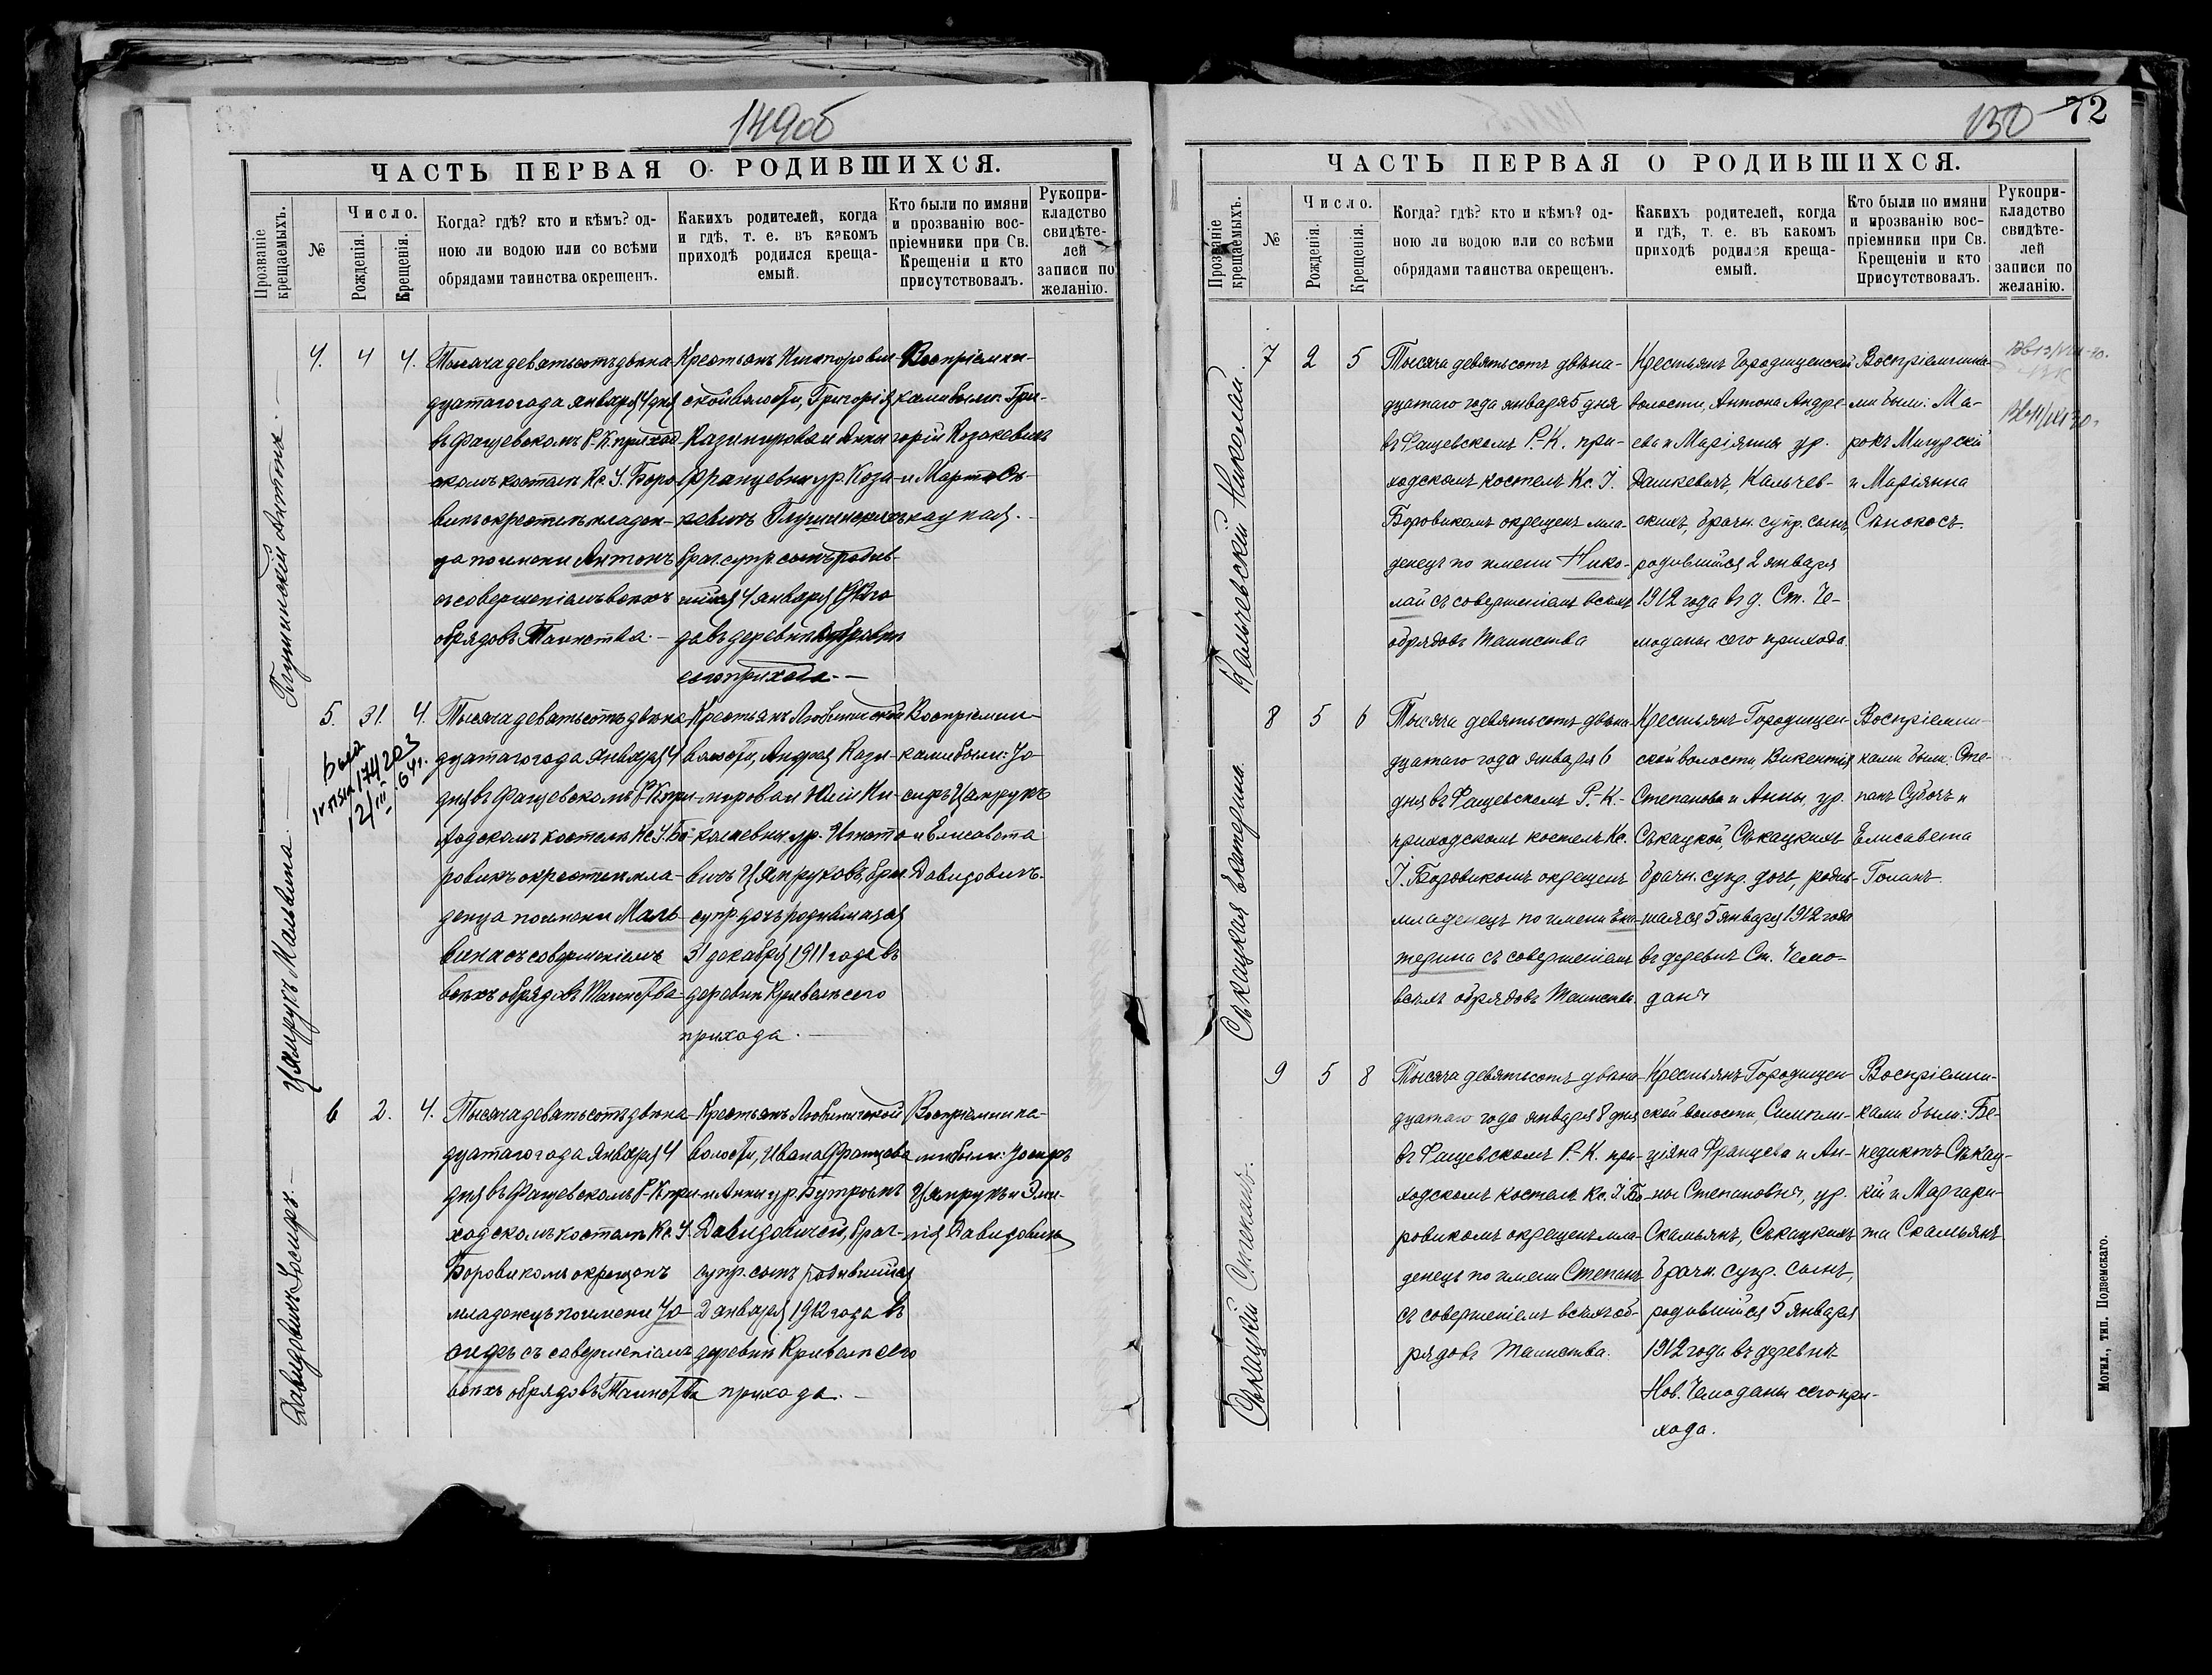 149об
ЧАСТЬ ПЕРВАЯ О РОДИВШИХСЯ.
Прозваніе крещаемыхъ.
№
Число.
Рожденія.
Крещенія.
Когда? гдѣ? кто и кѣмъ? од-
ною ли водою или со всѣми
обрядами таинства окрещенъ.
Какихъ родителей, когда
и гдѣ, т. е. въ какомъ
приходѣ родился креща-
емый.
Кто были по имяни
и прозванію вос-
пріемники при Св.
Крещеніи и кто
присутствовалъ.
Рукопри-
кладство
свидѣте-
лей
записи по
желанію.
Глушинскій Антонъ
4. 4 4.
Тысяча девятьсотъ двѣна-
дцатаго года января 4 дня
въ Фащевскомъ Р.-К. приход
скомъ костелѣ Кс. І. Боро
викъ окрестилъ младен-
ца по имени Антонъ
съ совершеніемъ всѣхъ
обрядовъ Таинства. —
Крестьянъ
ской волости, Григорія
Казимирова и Анны
Францевны ур. Коза-
кевичъ Глушинскихъ
брач. супр. сынъ родив-
шійся 4 января 1912 го
да въ деревнѣ
сего прихода. —
Воспріемни-
ками были: Гри-
горій Козакевичъ
и Марта Сѣ-
кацкая. —
Цямрукъ Мальвина —
5. 31. 4.
Тысяча девятьсотъ двѣна-
дцатаго года января 4
дня въ Фащевскомъ Р-К при
ходскомъ костелѣ Кс. І. Бо-
ровикъ окрестилъ мла-
денца по имени Маль-
вина съ совершеніемъ
всѣхъ обрядовъ Таинства
Крестьянъ Любиничской
волости, Андрея Кази-
мирова и Юліи Ни-
колаевны ур.
вичъ Цямруковъ, брач.
супр. дочь родившаяся
31 декабря 1911 года въ
деревнѣ Кривелѣ сего
прихода. —
Воспріемни-
ками были: Іо-
сифъ Цямрукъ
и Елисавета
Давидовичъ.
Давидовичъ Іосифъ —
6 2. 4.
Тысяча девятьсотъ двѣна-
дцатаго года Января 4
дня въ Фащевскомъ Р-К при
ходскомъ костелѣ Кс. І.
Боровикомъ окрещенъ
младенецъ по имени Іо-
сифъ съ совершеніемъ
всѣхъ обрядовъ Таинства
Крестьянъ Любиничской
волости, Ивана Францева
и Анны ур. Бутромъ
Давидовичей, брач-
супр. сынъ родившійся
2 января 1912 года въ
деревнѣ Кривелѣ сего
прихода. —
Воспріемника-
ми были: Іосифъ
Цямрукъ и Эми-
лія Давидовичъ
150 72
ЧАСТЬ ПЕРВАЯ О РОДИВШИХСЯ.
Прозваніе крещаемыхъ.
№
Число.
Рожденія.
Крещенія.
Когда? гдѣ? кто и кѣмъ? од-
ною ли водою или со всѣми
обрядами таинства окрещенъ.
Какихъ родителей, когда
и гдѣ, т. е. въ какомъ
приходѣ родился креща-
емый.
Кто были по имяни
и прозванію вос-
пріемники при Св.
Крещеніи и кто
присутствовалъ.
Рукопри-
кладство
свидѣте-
лей
записи по
желанію.
Кальчевскій Николай.
7 2 5
Тысяча девятьсотъ двѣна-
дцатаго года января 5 дня
въ Фащевскомъ Р.-К. при-
ходскомъ костелѣ Кс. І.
Боровикомъ окрещенъ мла-
денецъ по имени Нико-
лай съ совершеніемъ всѣхъ
обрядовъ Таинства
Крестьянъ Городищенской
волости, Антона Андре-
ева и Маріянны ур.
Дашкевичъ, Кальчев-
скихъ, брачн. супр. сынъ,
родившійся 2 января
1912 года въ д. Ст. Че-
моданы сего прихода.
Воспріемника-
ми были: Ма-
рокъ Мигурскій
и Маріянна
Сѣнокосъ.
Сѣкацкая Екатерина.
8 5 6
Тысяча девятьсотъ двѣна-
дцатаго года января 6
дня въ Фащевскомъ Р.-К.-
приходскомъ костелѣ Кс.
І. Боровикомъ окрещенъ
младенецъ по имени Ека-
терина съ совершеніемъ
всѣхъ обрядовъ Таинства.
Крестьянъ Городищен-
ской волости, Викентія
Степанова и Анны, ур.
Сѣкацкой, Сѣкацкихъ
брачн. супр. дочь, родив-
шаяся 5 января 1912 года
въ деревнѣ Ст. Чемо-
даны
Воспріемни-
ками были: Сте-
панъ Субочъ и
Елисавета
Голанъ.
Сѣкацкій Степанъ.
9 5 8
Тысяча девятьсотъ двѣна-
дцатаго года января 8 дня
въ Фащевскомъ Р-К. при-
ходскомъ костелѣ Кс. І. Бо-
ровикомъ окрещенъ мла-
денецъ по имени Степанъ
съ совершеніемъ всѣхъ об-
рядовъ Таинства.
Крестьянъ Городищен-
ской волости, Симпли-
ціяна Францева и Ан-
ны Степановны, ур.
Скамьянъ, Сѣкацкихъ
брачн. супр. сынъ,
родившійся 5 января
1912 года въ деревнѣ
Нов. Чемоданы сего при-
хода.
Воспріемни-
ками были: Бе-
недиктъ Сѣкац-
кій и Маргари-
та Скамьянъ
Могил., тип. Подземскаго.